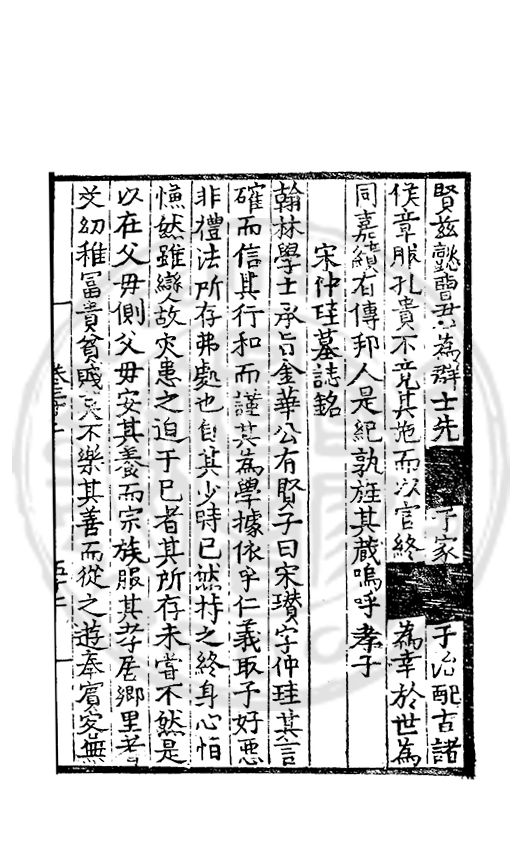 賢茲懿曹為群士先 于家 于治配古諸
侯章服孔貴不竟其施而以官終 為幸於世為
同嘉績有傳邦人是紀孰旌其藏嗚呼孝子
宋仲珪墓誌銘
翰林學士承旨金華公有賢子曰宋瓚字仲珪其言
確而信其行和而謹其為學據依乎仁義取予好惡
非禮法所存弗處也自其少時已然持之終身心怕
然雖變故災患之迫于己者其所存未嘗不然是
以在父母側父母安其養而宗族服其孝居鄉里耆
艾幼稚富貴貧賤莫不樂其善而從之遊奉賓客無